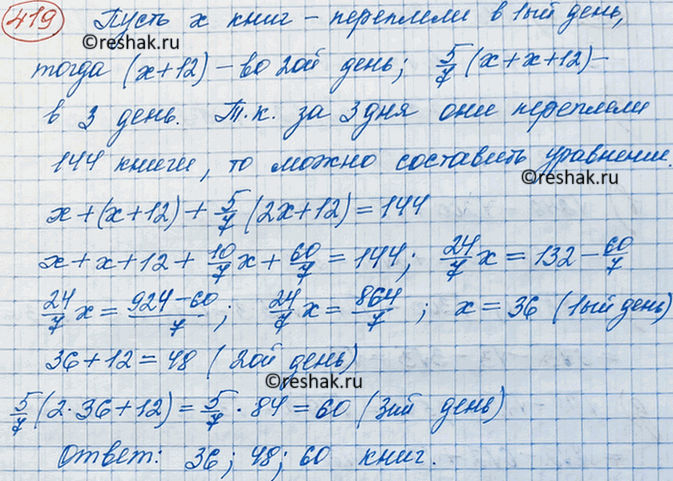 419 Пусть x книг - переплели в 1ый день,
© reshak.ru
тогда (x+12) - во 2ой день; 5/7 (x+x+12) -
в 3 день. Т.к. за 3 дня они переплели
144 книги, то можно составить уравнение.
© reshak.ru
x+(x+12)+5/7(2x+12)=144
x+x+12+10/7x+60/7=144; 24/7x=132-60/7
24/7x=(924-60)/7; 24/7x=864/7; x=36 (1ый день)
36+12=48 (2ой день)
© reshak.ru
5/7(2·36+12)=5/7·84=60 (3ий день)
Ответ: 36; 48; 60 книг.
© reshak.ru